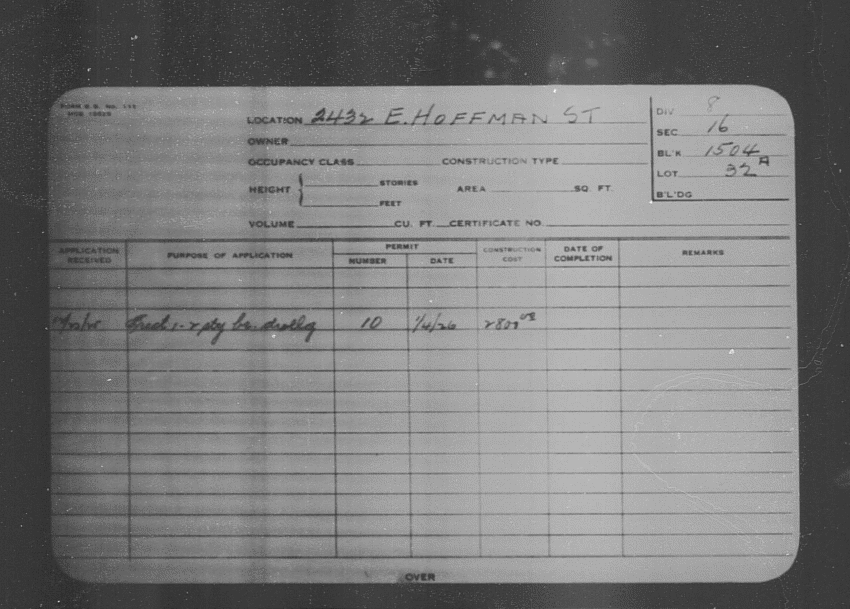 FORM B.B. No. 115
LOCATION 2432 E. HOFFMAN ST
DIV 8
SEC 16
OWNER
BL'K 1504 A
OCCUPANCY CLASS CONSTRUCTION TYPE
LOT 32
HEIGHT STORIES AREA SQ. FT.
FEET
B'L'DG
VOLUME CU. FT. CERTIFICATE NO.
APPLICATION RECEIVED PURPOSE OF APPLICATION PERMIT NUMBER DATE CONSTRUCTION COST DATE OF COMPLETION REMARKS
1-2 sty br. 10 1/4/26 2800
OVER